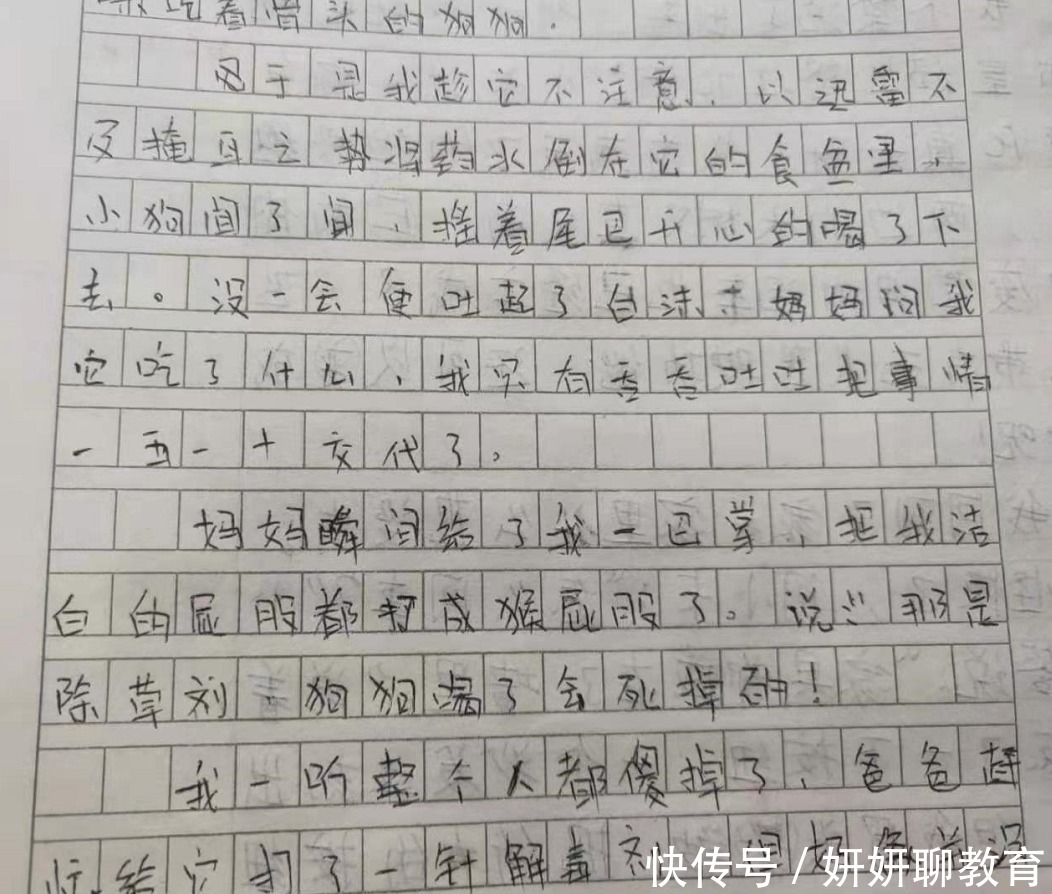 吃着骨头的狗狗.
于是我趁它不注意.以迅雷不
及掩耳之势将药水倒在它的食盆里,
小狗闻了闻,摇着尾巴开心的喝了下
去。没一会便吐起了白沫妈妈问我
它吃了什么,我只有吞吞吐吐把事情
一五一十交代了,
妈妈瞬间给了我一巴掌,把我洁
白的屁股都打成猴屁股了。说:那是
除草剂狗狗喝了会死掉的!
我一听整个人都傻掉了,爸爸赶
忙给它打了一针解毒剂
快传号/妍妍聊教育